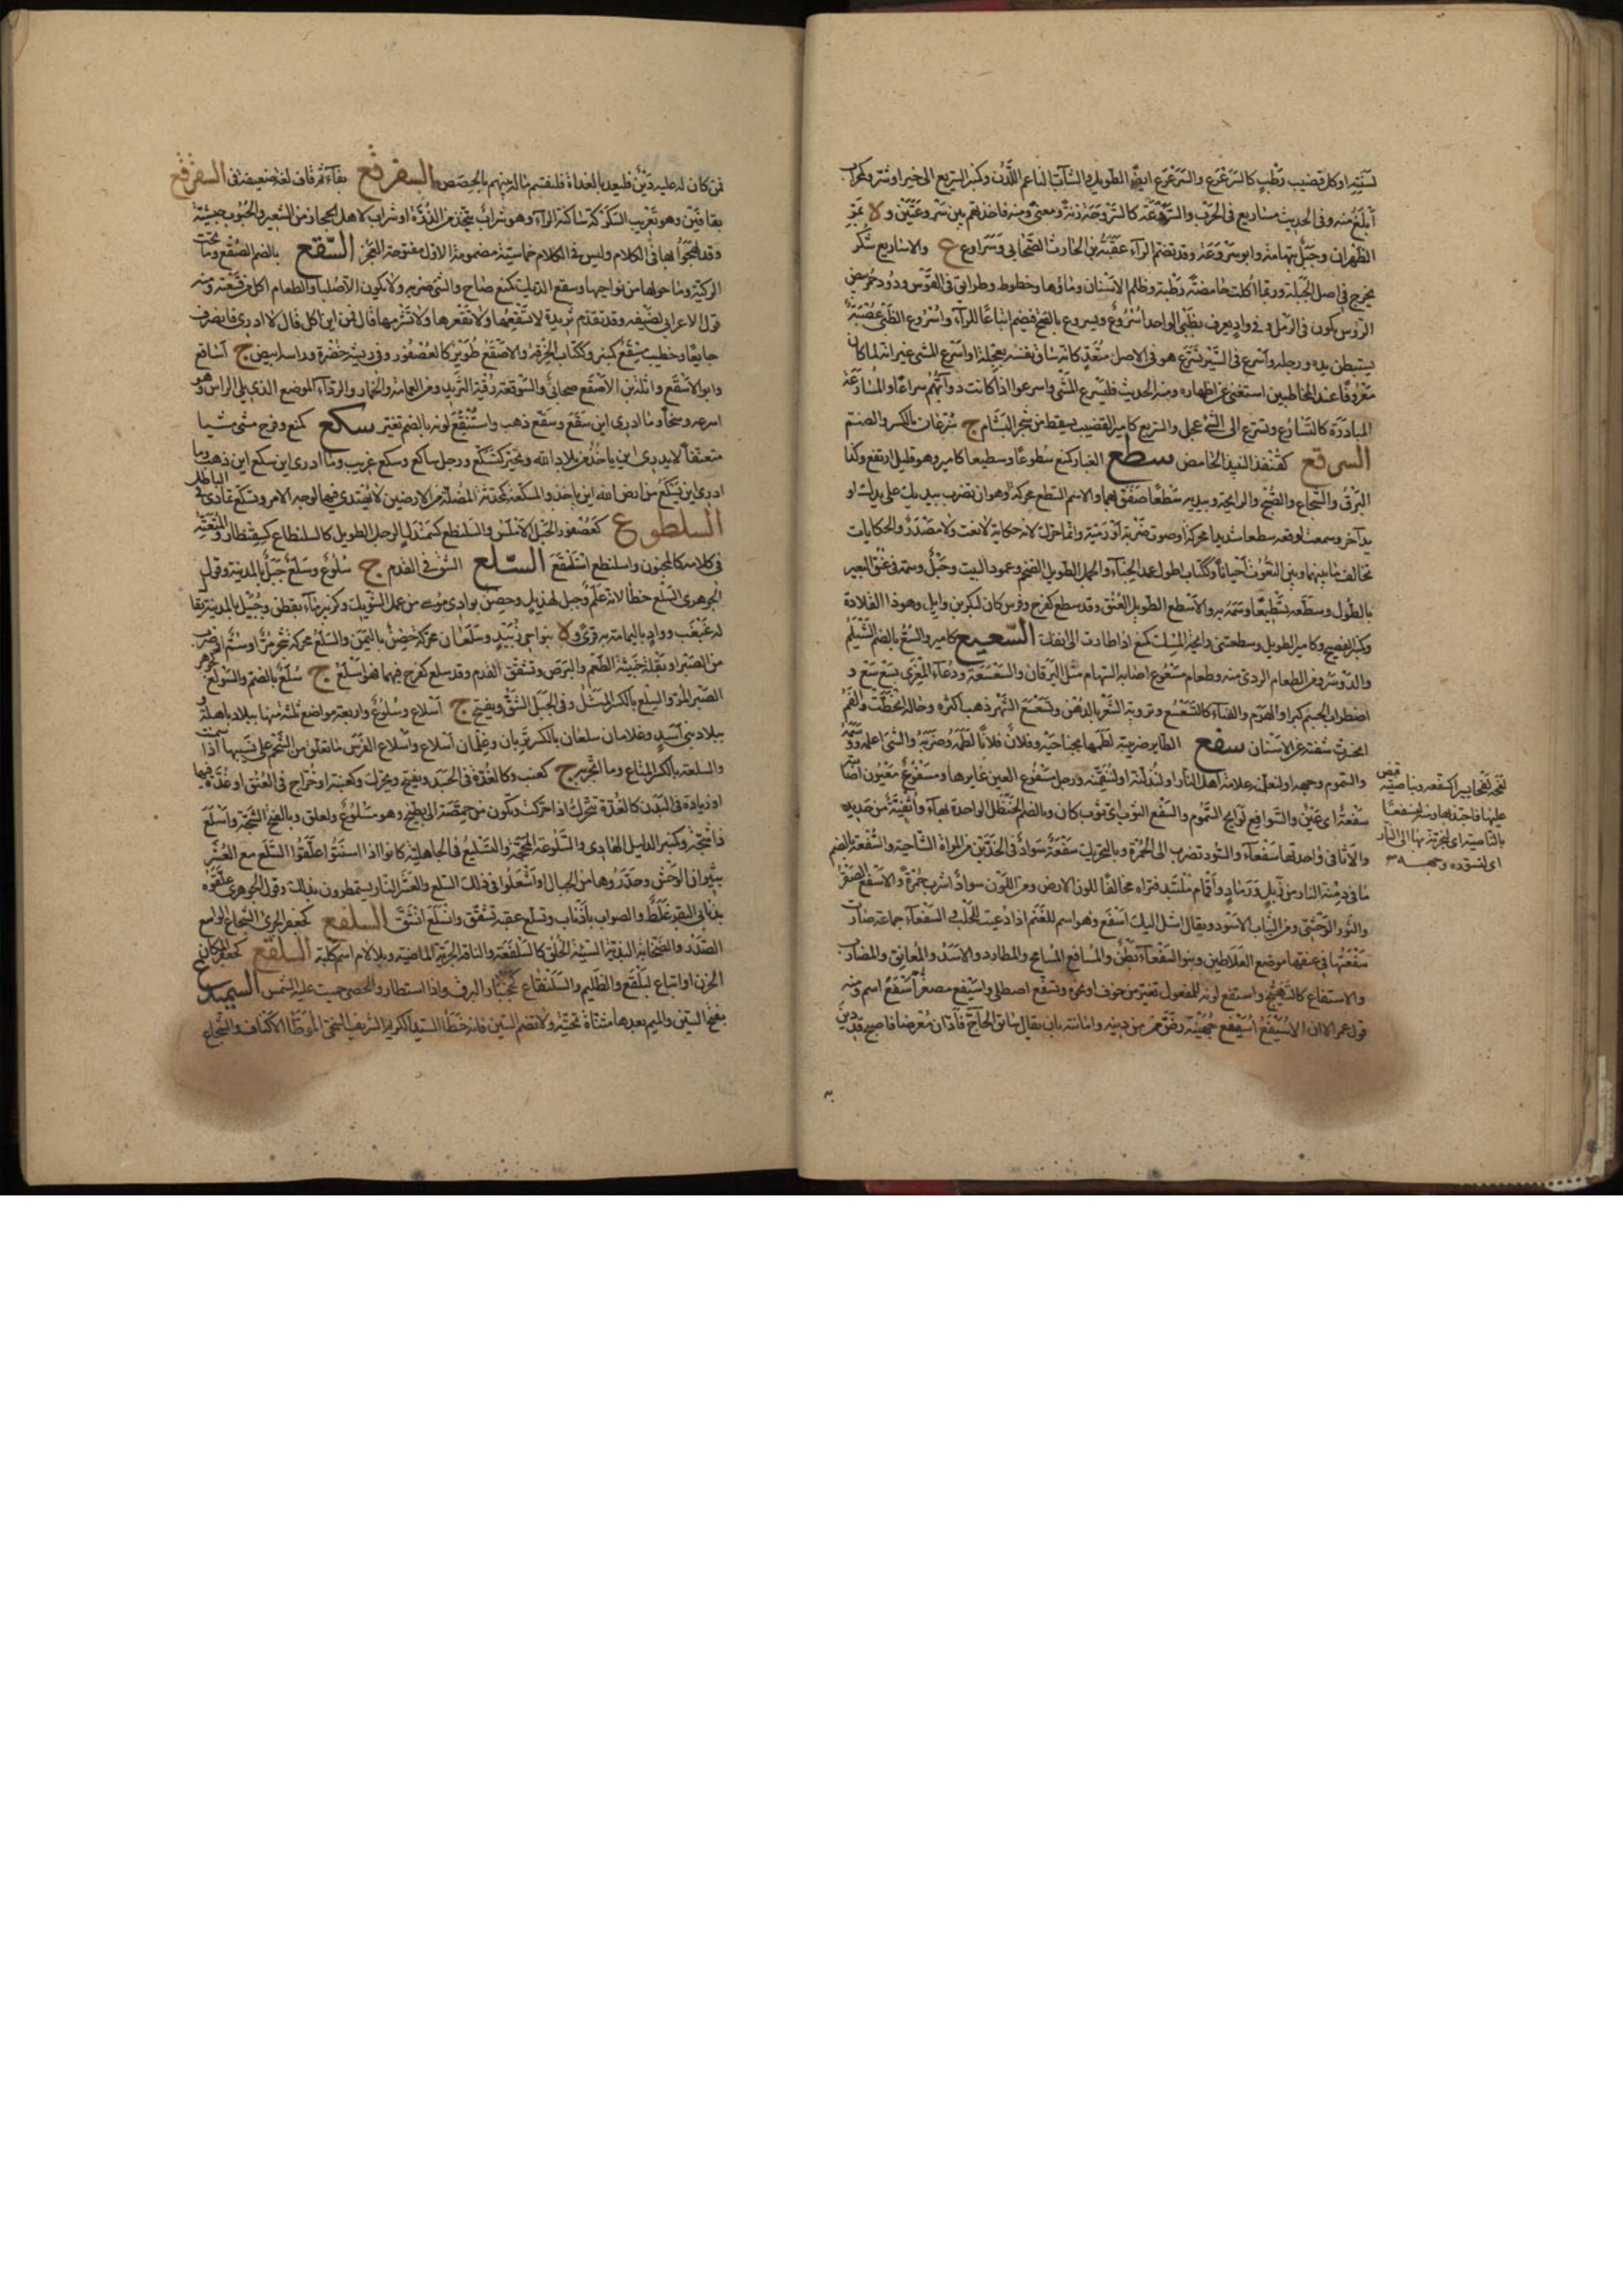 لسنته او كل قضيب رطب كالسرعرع والسرعرع ايضا الطويل والشاب الناعم اللدن وكبر السريع الى خير او شر وكحراب
ابلغ منه وفى الحديث مساريع فى الحرب والسروعة كالزروحة زنة ومعنى ومنه فاخذ بهم بين سروعتين و
الظهران وجبل بتهامة وابو سروعة وقد تضم الراء عقبة بن الحارث الصحابى وسراوع ع والاساريع شكر
يخرج فى اصل الحبلة وربما اكلت حامضة رطبة وظلم الاسنان وماؤها وخطوط وطرائق فى القوس ودود حمر بيض
الرؤس تكون فى الرمل و فى واد يعرف بظبى الواحد اسروع ويسروع بالفتح فيضم اتباعا للراء واسروع الظبى عصبة
يستبطن يده ورجله واسرع فى السير كسرع هو فى الاصل متعد كانه ساق نفسه بعجلة او اسرع المشى غير انه لما كان
معروفا عند المخاطبين استغنى عن اظهاره ومنه الحديث فليسرع المشى واسرعوا اذا كانت دوابهم سراعا والمسارعة
المبادرة كالتسارع وتسرع الى الشئ عجل والسريع كامير القضيب يسقط من شجر البشام ج سرعان بالكسر والضم
السرقع كقنفذ النبيذ الحامض سطع الغبار كمنع سطوعا وسطيعا كامير وهو قليل ارتفع وكذا
البرق والشعاع والصبح والرائحة وبيديه سطعا صفق بهما والاسم السطع محركة او هو ان تضرب بيديك على يدك او
يد آخر وسمعت لوقعه سطعا شديدا محركة اوصوت ضربة او رمية وانما حرك لانه حكاية لا نعت ولا مصدر والحكايات
تخالف ما بينها وبين النعوت احيانا وككتاب اطول عمد الخباء والجمل الطويل الضخم وعمود البيت وجبل وسمة فى عنق البعير
بالطول وسطعه تسطيعا وسمه به والاسطع الطويل العنق وقد سطع كفرح وفرس كان لبكر بن وايل وهو ذا القلادة
وكمنبر الفصيح وكامير الطويل وسطعتنى رائحة المسك كمنع اذا طارت الى انفك السعيع كامير والسع بالضم الشيلم
والدوسر ومن الطعام الردى منه وطعام مسعوع اصابه السهام مثل اليرقان والسعسعة دعاء المعزى بسع سع و
اضطراب الجسم كبرا والهرم والفناء كالتسعسع وتروية الشعر بالدهن وتسعسع الشهر ذهب اكثره وحاله انحطت والفم
انحسرت شفته عن الاسنان سفع الطاير ضريبته لطمها بجناحيه وفلان فلانا لطمه وضربه والشئ اعلمه ووسمه
والسموم وجهه او لنعلمنه علامة اهل النار او لنذلنه او لنقمئنه ورجل مسفوع العين غايرها ومسفوع معيون اصابته
سفعة اى عين والسوافع لوافح السموم والسفع الثوب اى ثوب كان وبالضم حب الحنظل الواحدة بهاء واثفية من حديد
والاثافى واحدتها سفعاء والسود تضرب الى الحمرة وبالتحريك سفعة سواد فى الخدين من المراة الشاحبة والسفعة بالضم
ما فى دمنة الدار من زبل ورماد وقمام متلبد فتراه مخالفا للون الارض ومن اللون سواد اشرب حمرة والاسفع الصقر
والثور الوحشى ومن الثياب الاسود ويقال اشل اليك اسفع وهو اسم للغنم اذا دعيت للحلب والسفعاء حمامة صارت
سفعتها فى عنقها موضع العلاطين وبنو السفعاء بطن والمسافع المسافح والمطارد والاسد والمعانق والمضارب
والاستفاع كالتهيج واستفع لونه للمفعول تغير من خوف او نحوه وتسفع اصطلى واسيفع مصغر اسفع اسم ومنه
قول عمر الا ان الاسيفع اسيفع جهينة رضى من دينه وامانته بان يقال سابق الحاج فادان معرضا فاصبح قد رين
لفحه لفحا يسيرا كسفعه وبناصيته قبض
عليها فاجتذبها ومنه لنسفعا
بالناصية اى لنجرنه بها الى النار
اى لنسودن وجهه
فمن كان له عليه دين فليعد بالغداة فلنقسم ماله بينهم بالحصص السفرقع بفاء ثم قاف لغة ضعيفة فى السقرقع
بقافين وهو تعريب السكركة ساكنة الراء وهو شراب يتخذ من الذرة او شراب لاهل الحجاز من الشعير والحبوب حبشية
وقد لهجوا بها فى الكلام وليس فى الكلام خماسية مضمومة الاول مفتوحة العجز السقع بالضم الصقع وما تحت
الركية وما حولها من نواحيها وسقع الديك كمنع صاح والشئ ضربه ولا يكون الا صلبا والطعام اكل من سقعته ومنه
قول الاعرابى لضيفه وقد قدم ثريدة لا تسقعها ولا تقعرها ولا تشرمها قال فمن اين اكل قال لا ادرى فانصرف
جايعا وخطيب مسقع كمنبر وككتاب الخرقة والاسقع طوير كالعصفور وفى ريشه خضرة وراسه ابيض ج اساقع
وابو الاسقع واثلة بن الاسقع صحابى والسوقعة وقبة الثريد ومن العمامة والخمار والرداء الموضع الذى يلى الراس وهو
اسرعه وسخا وما ادرى اين سقع وسقع ذهب واستقع لونه بالضم تغير سكع كمنع وفرح مشى مشيا
متعسفا لا يدرى اين ياخذ من بلاد الله وتحير كتسكع ورجل ساكع وسكع غريب وما ادرى اين سكع اين ذهب وما
ادرى اين تسكع من ارض الله اين ياخذ والمسكعة كمحدثة المضلة من الارضين لا يهتدى فيها لوجه الامر وتسكع تمادى فى الباطل
السلطوع كعصفور الجبل الاملس والسلنطع كسمندل الرجل الطويل كالسلنطاع كسقنطار والمتعته
فى كلامه كالمجنون واسلنطع اسلنقع السلع الشق فى القدم ج سلوع وسلع جبل بالمدينة وقول
الجوهرى السلع خطا لانه علم وجبل لهذيل وحصن بوادى موسى من عمل الشوبك وكزبير ماء بقطن وجبيل بالمدينة يقال
له غبغب وواد باليمامة به قرى و بنواحى زبيد وسلعان محركة حصن باليمن والسلع محركة شجر مر او سم او ضرب
من الصبر او بقلة خبيثة الطعم والبرص وتشقق القدم وقد سلع كفرح فيهما فهو اسلع ج سلع بالضم والسولع كجوهر
الصبر المر والسلع بالكسر المثل وفى الجبل الشق ويفتح ج اسلاع وسلوع واربعة مواضع ثلثة منها ببلاد باهلة و
ببلاد بنى اسد وغلامان سلعان بالكسر تربان وغلمان اسلاع واسلاع الفرس ما تعلق من اللحم على نسييها اذا سمنت
والسلعة بالكسر المتاع وما اتجر به ج كعنب وكالغدة فى الجسد ويفتح ويحرك وكعنبة او خراج فى العنق او غدة فيها
او زيادة فى البدن كالغدة تتحرك اذا حركت وتكون من حمصة الى بطيخة وهو مسلوع والعلق وبالفتح الشجة واسلع
فانشجه وكمنبر الدليل الهادى والمسلوعة المحجة والتسليع فى الجاهلية كانوا اذا اسنتوا علقوا السلع مع العشر
بثيران الوحش وحدروها من الجبال واشعلوا فى ذلك السلع والعشر النار يستمطرون بذلك وقول الجوهرى علقوه
بذنابى البقر غلط والصواب باذناب وتسلع عقبه تشقق وانسلع انشق السلفع كجعفر الجرئ الشجاع الواسع
الصدر والصخابة البذية السيئة الخلق كالسلفعة والناقة الجريئة الماضية وبلا لام اسم كلبة السلقع كجعفر المكان
الحزن او اتباع لبلقع والظليم والسلنقاع كجحنبار البرق واذا استطار والحصى حميت عليه الشمس السميدع
بفتح السين والميم بعدها مثناة تحتية ولا تضم السين فانه خطأ السيد الكريم الشريف السخى الموطأ الاكناف والشجاع